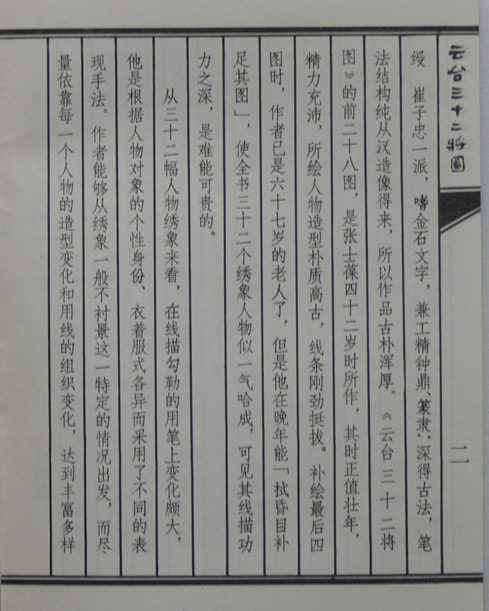 云台三十二将圖
绶 崔子忠一派，嗜金石文字，兼工精钟鼎、篆隶，深得古法，笔
法结构纯从汉造像得来，所以作品古朴浑厚。《云台三十二将
图》的前二十八图，是张士葆四十二岁时所作，其时正值壮年，
精力充沛，所绘人物造型朴质高古，线条刚劲挺拔。补绘最后四
图时，作者已是六十七岁的老人了，但是他在晚年能「拭昏目补
足其图」，使全书三十二个绣象人物似一气哈成，可见其线描功
力之深，是难能可贵的。
从三十二幅人物绣象来看，在线描勾勒的用笔上变化颇大，
他是根据人物对象的个性身份、衣着服式各异而采用了不同的表
现手法。作者能够从绣象一般不衬景这一特定的情况出发，而尽
量依靠每一个人物的造型变化和用线的组织变化，达到丰富多样
二